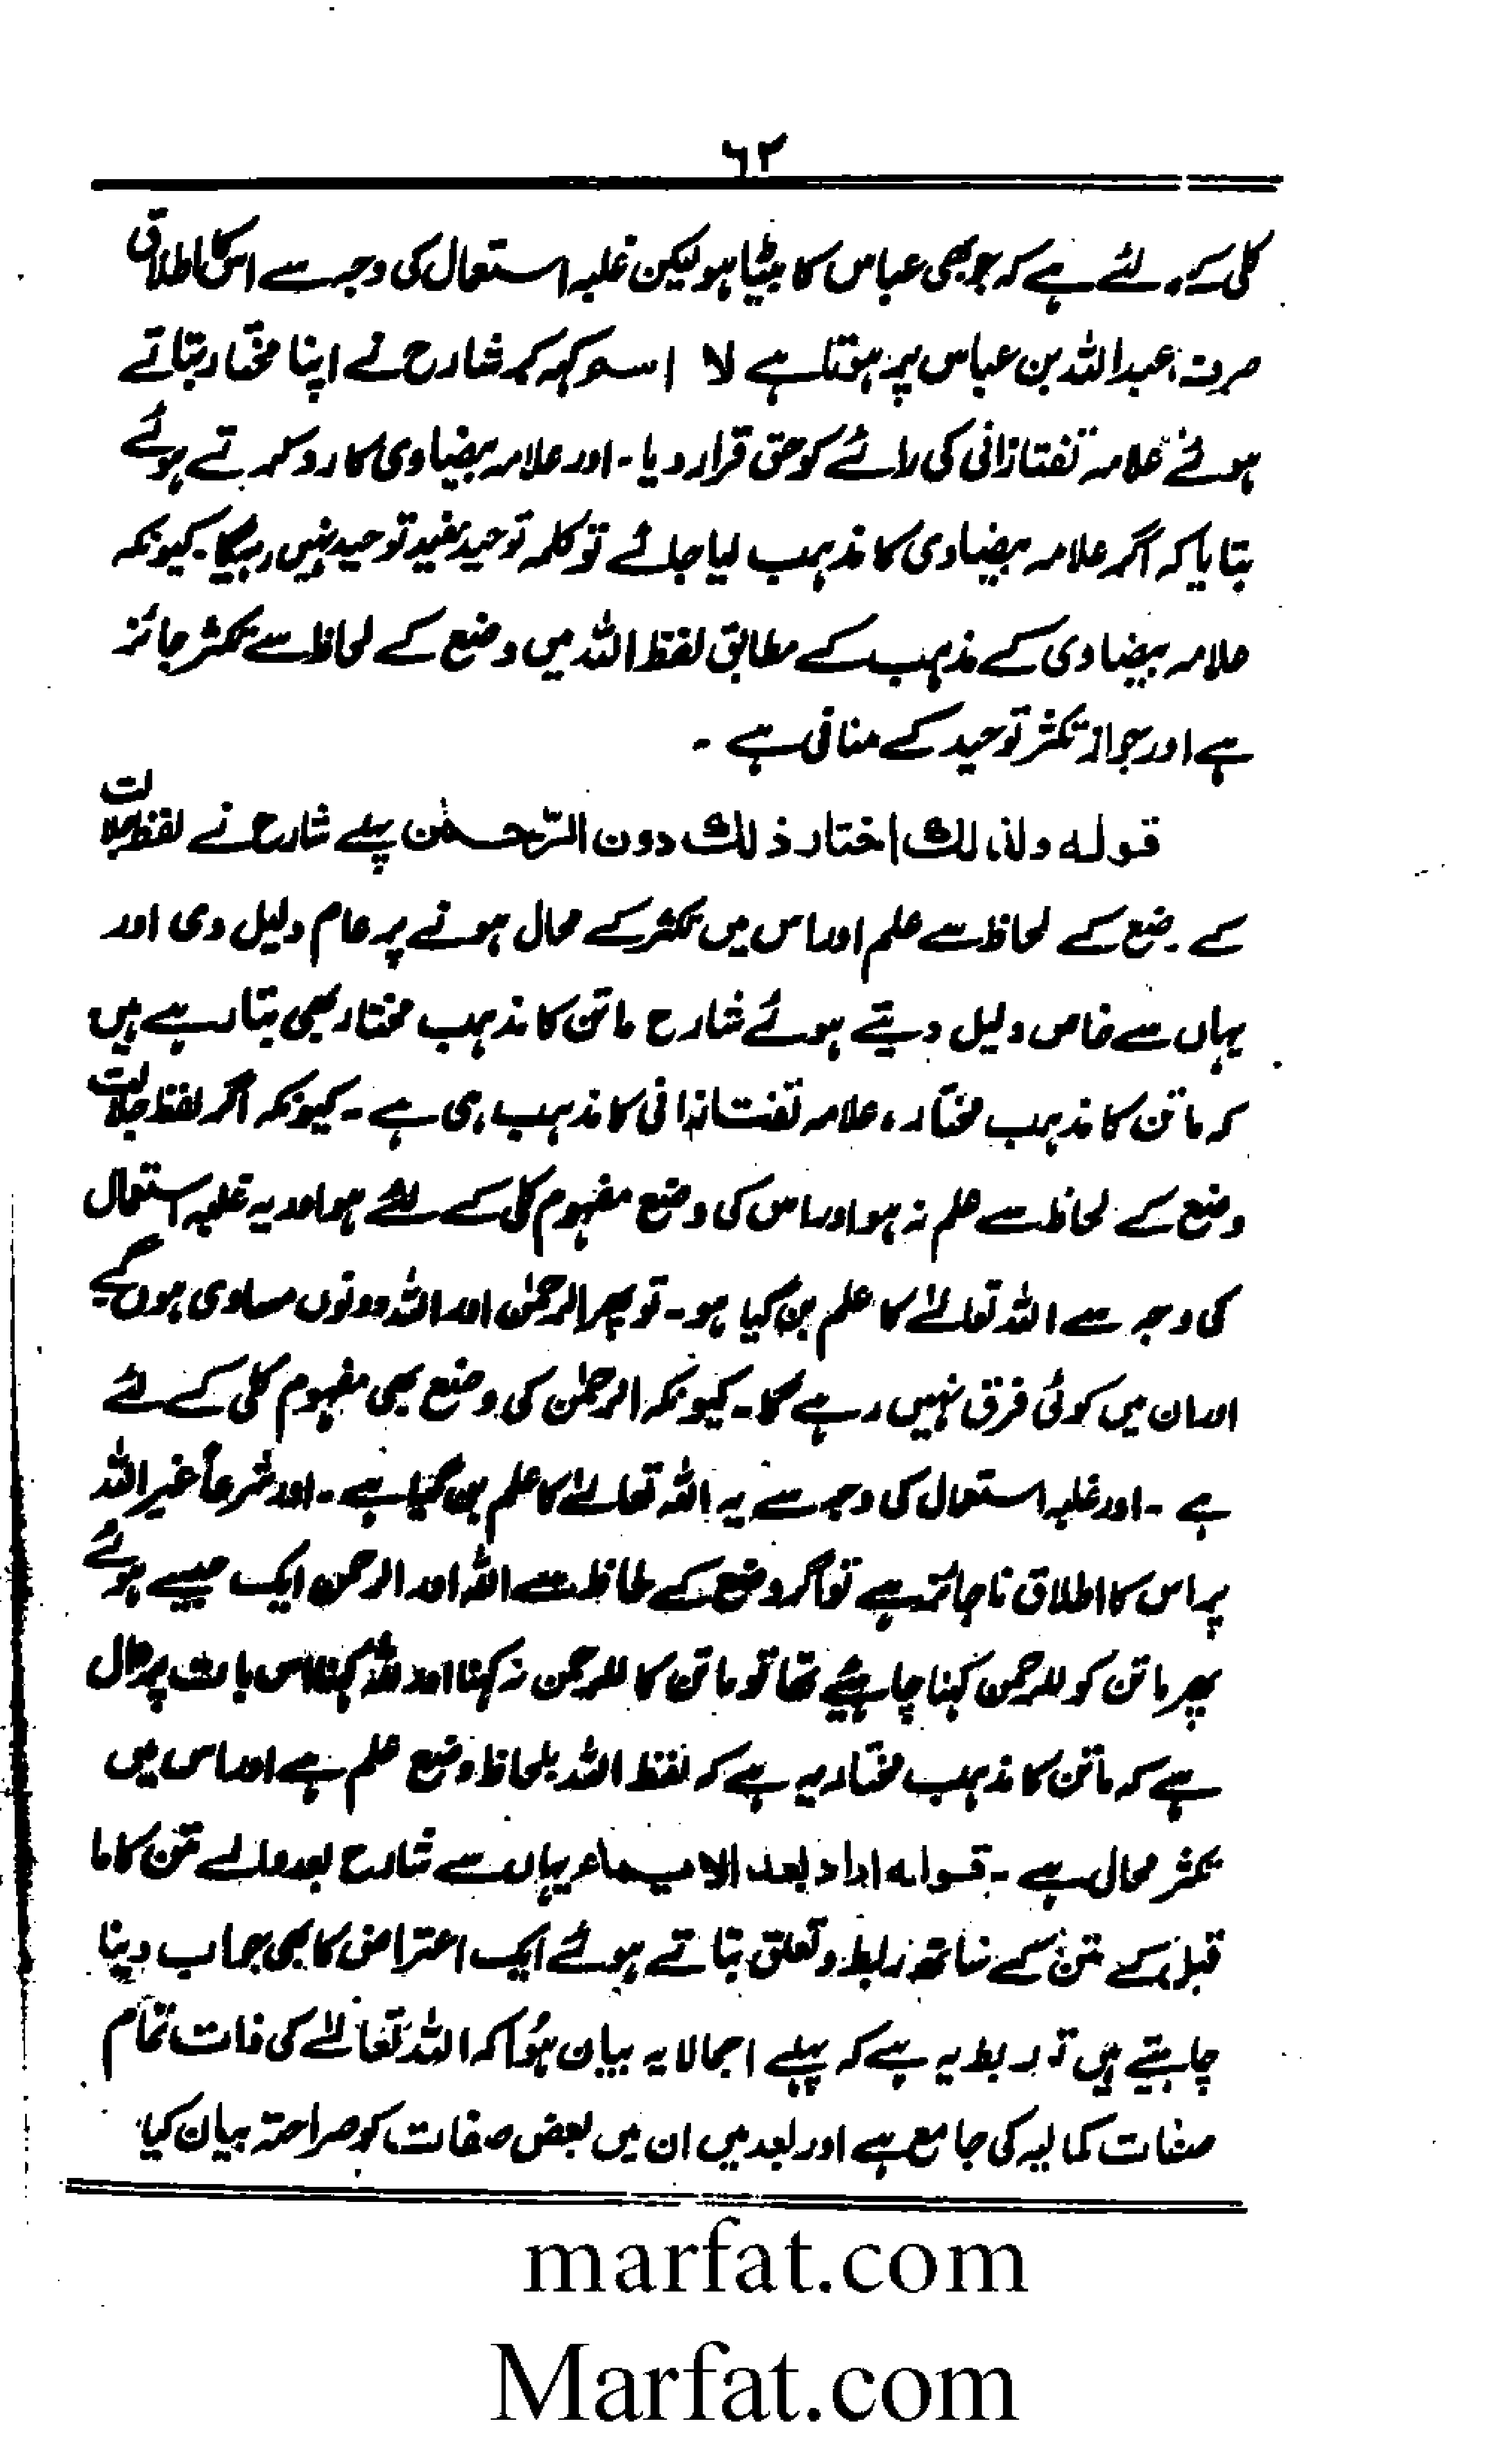 ۶۲
کلی کے لئے ہے کہ جو بھی عباس کا بیٹا ہو لیکن غلبہ استعمال کی وجہ سے اس کا اطلاق
صرف عبداللہ بن عباس پر ہوتا ہے لا اسم کہہ کر شارح نے اپنا مختار بتاتے
ہوئے علامہ تفتازانی کی رائے کو حق قرار دیا۔ اور علامہ بیضاوی کا رد کرتے ہوئے
بتایا کہ اگر علامہ بیضاوی کا مذہب لیا جائے تو کلمہ توحید مفید توحید نہیں رہیگا۔ کیونکہ
علامہ بیضاوی کے مذہب کے مطابق لفظ اللہ میں وضع کے لحاظ سے تکثر جائز
ہے اور جواز تکثر توحید کے منافی ہے ۔
قولہ ولذالك اختار ذلك دون الرّحمٰن پہلے شارح نے لفظ جلالت
کے وضع کے لحاظ سے علم اور اس میں تکثر کے محال ہونے پر عام دلیل دی اور
یہاں سے خاص دلیل دیتے ہوئے شارح ماتن کا مذہب مختار بھی بتا رہے ہیں
کہ ماتن کا مذہب مختار، علامہ تفتازانی کا مذہب ہی ہے ۔ کیونکہ اگر لفظ جلالت
وضع کے لحاظ سے علم نہ ہو اور اس کی وضع مفہوم کلی کے لئے ہو اور یہ غلبہ استعمال
کی وجہ سے اللہ تعالےٰ کا علم بن گیا ہو۔ تو پھر الرحمٰن اور اللہ دونوں مساوی ہوں گے
اور ان میں کوئی فرق نہیں رہے گا۔ کیونکہ الرحمٰن کی وضع بھی مفہوم کلی کے لئے
ہے ۔ اور غلبہ استعمال کی وجہ سے یہ اللہ تعالےٰ کا علم بن گیا ہے ۔ اور شرعاً غیر اللہ
پر اس کا اطلاق ناجائز ہے تو اگر وضع کے لحاظ سے اللہ اور الرحمن ایک جیسے ہوئے
پھر ماتن کو للرحمن کہنا چاہیئے تھا تو ماتن کا للرحمن نہ کہنا اور للہ کہنا اس بات پر دال
ہے کہ ماتن کا مذہب مختار یہ ہے کہ لفظ اللہ بلحاظ وضع علم ہے اور اس میں
تکثر محال ہے ۔ قولہ اراد بعد الایماء یہاں سے شارح بعد والے متن کا ما
قبل کے متن کے ساتھ ربط و تعلق بتاتے ہوئے ایک اعتراض کا بھی جواب دینا
چاہتے ہیں تو ربط یہ ہے کہ پہلے اجمالا یہ بیان ہُوا کہ اللہ تعالےٰ کی ذات تمام
صفات کمالیہ کی جامع ہے اور بعد میں ان میں بعض صفات کو صراحتہ بیان کیا
marfat.com
Marfat.com